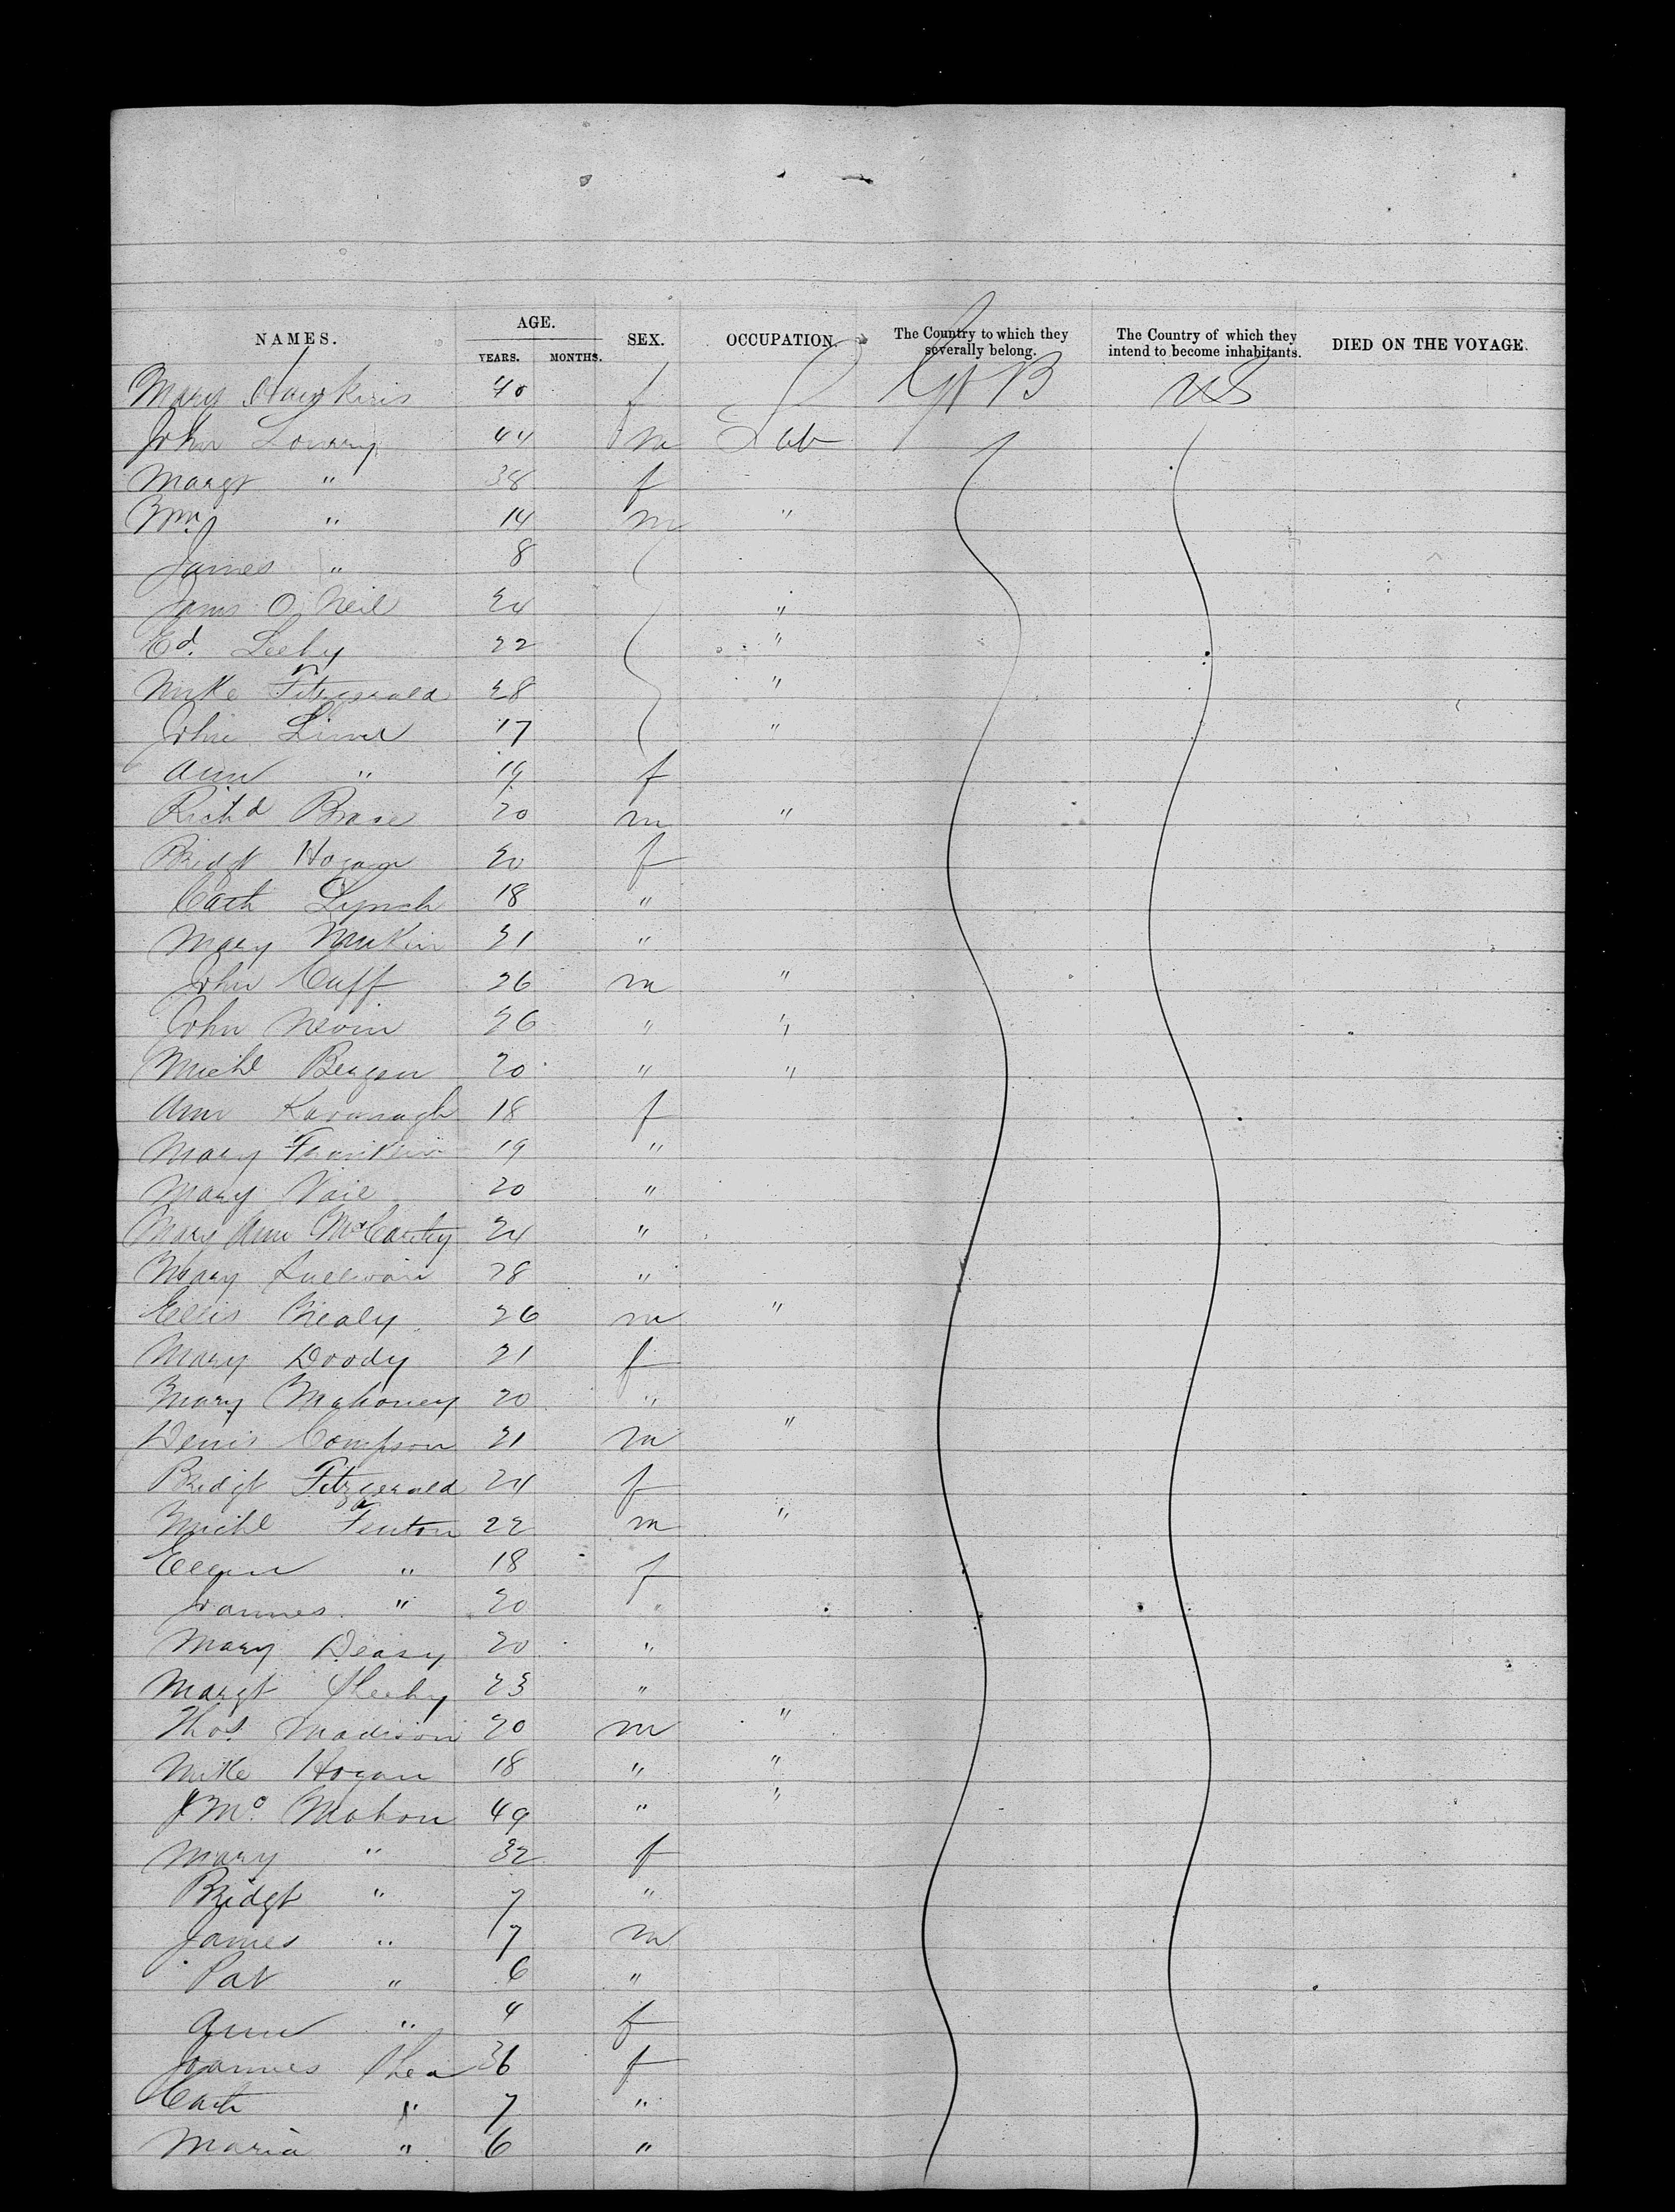 NAMES. AGE. SEX. OCCUPATION. The Country to which they severally belong. The Country of which they intend to become inhabitants. DIED ON THE VOYAGE.
YEARS. MONTHS.
Mary Hawkins 40 f Gt B US
John Lowery 44 m Lab
Margt " 38 f
Wm " 14 m "
James " 8
Jams O Neil 24 "
Ed. Leehy 22 "
Mike Fitzgerald 28 "
John 17 "
Ann " 19 f
Richd 20 m "
Bridgt Hogan 20 f
Cath Lynch 18 "
Mary 21 "
John Cuff 26 m "
John Nevin 26 " "
Michl Bergen 20 " "
Ann Kavanagh 18 f
Mary Franklin 19 "
Mary Vail 20 "
Mary Ann McCarthy 24 "
Mary Sullivan 28 "
Ellis 26 m "
Mary Doody 21 f
Mary Mahoney 20 "
Denis Compson 21 m "
Bridgt Fitzgerald 24 f
Michl Fenton 22 m "
Ellen " 18 f
Joannes " 20 "
Mary Deasy 20 "
Margt Sheehy 23 "
Thos. Madison 20 m "
Mike Hogan 18 " "
J Mc. Mahon 49 " "
Mary " 32 f
Bridgt " 7 "
James " 7 m
Pat " 6 "
Ann " 4 f
Joannes Shea 36 f
Cath " 7 "
Maria " 6 "